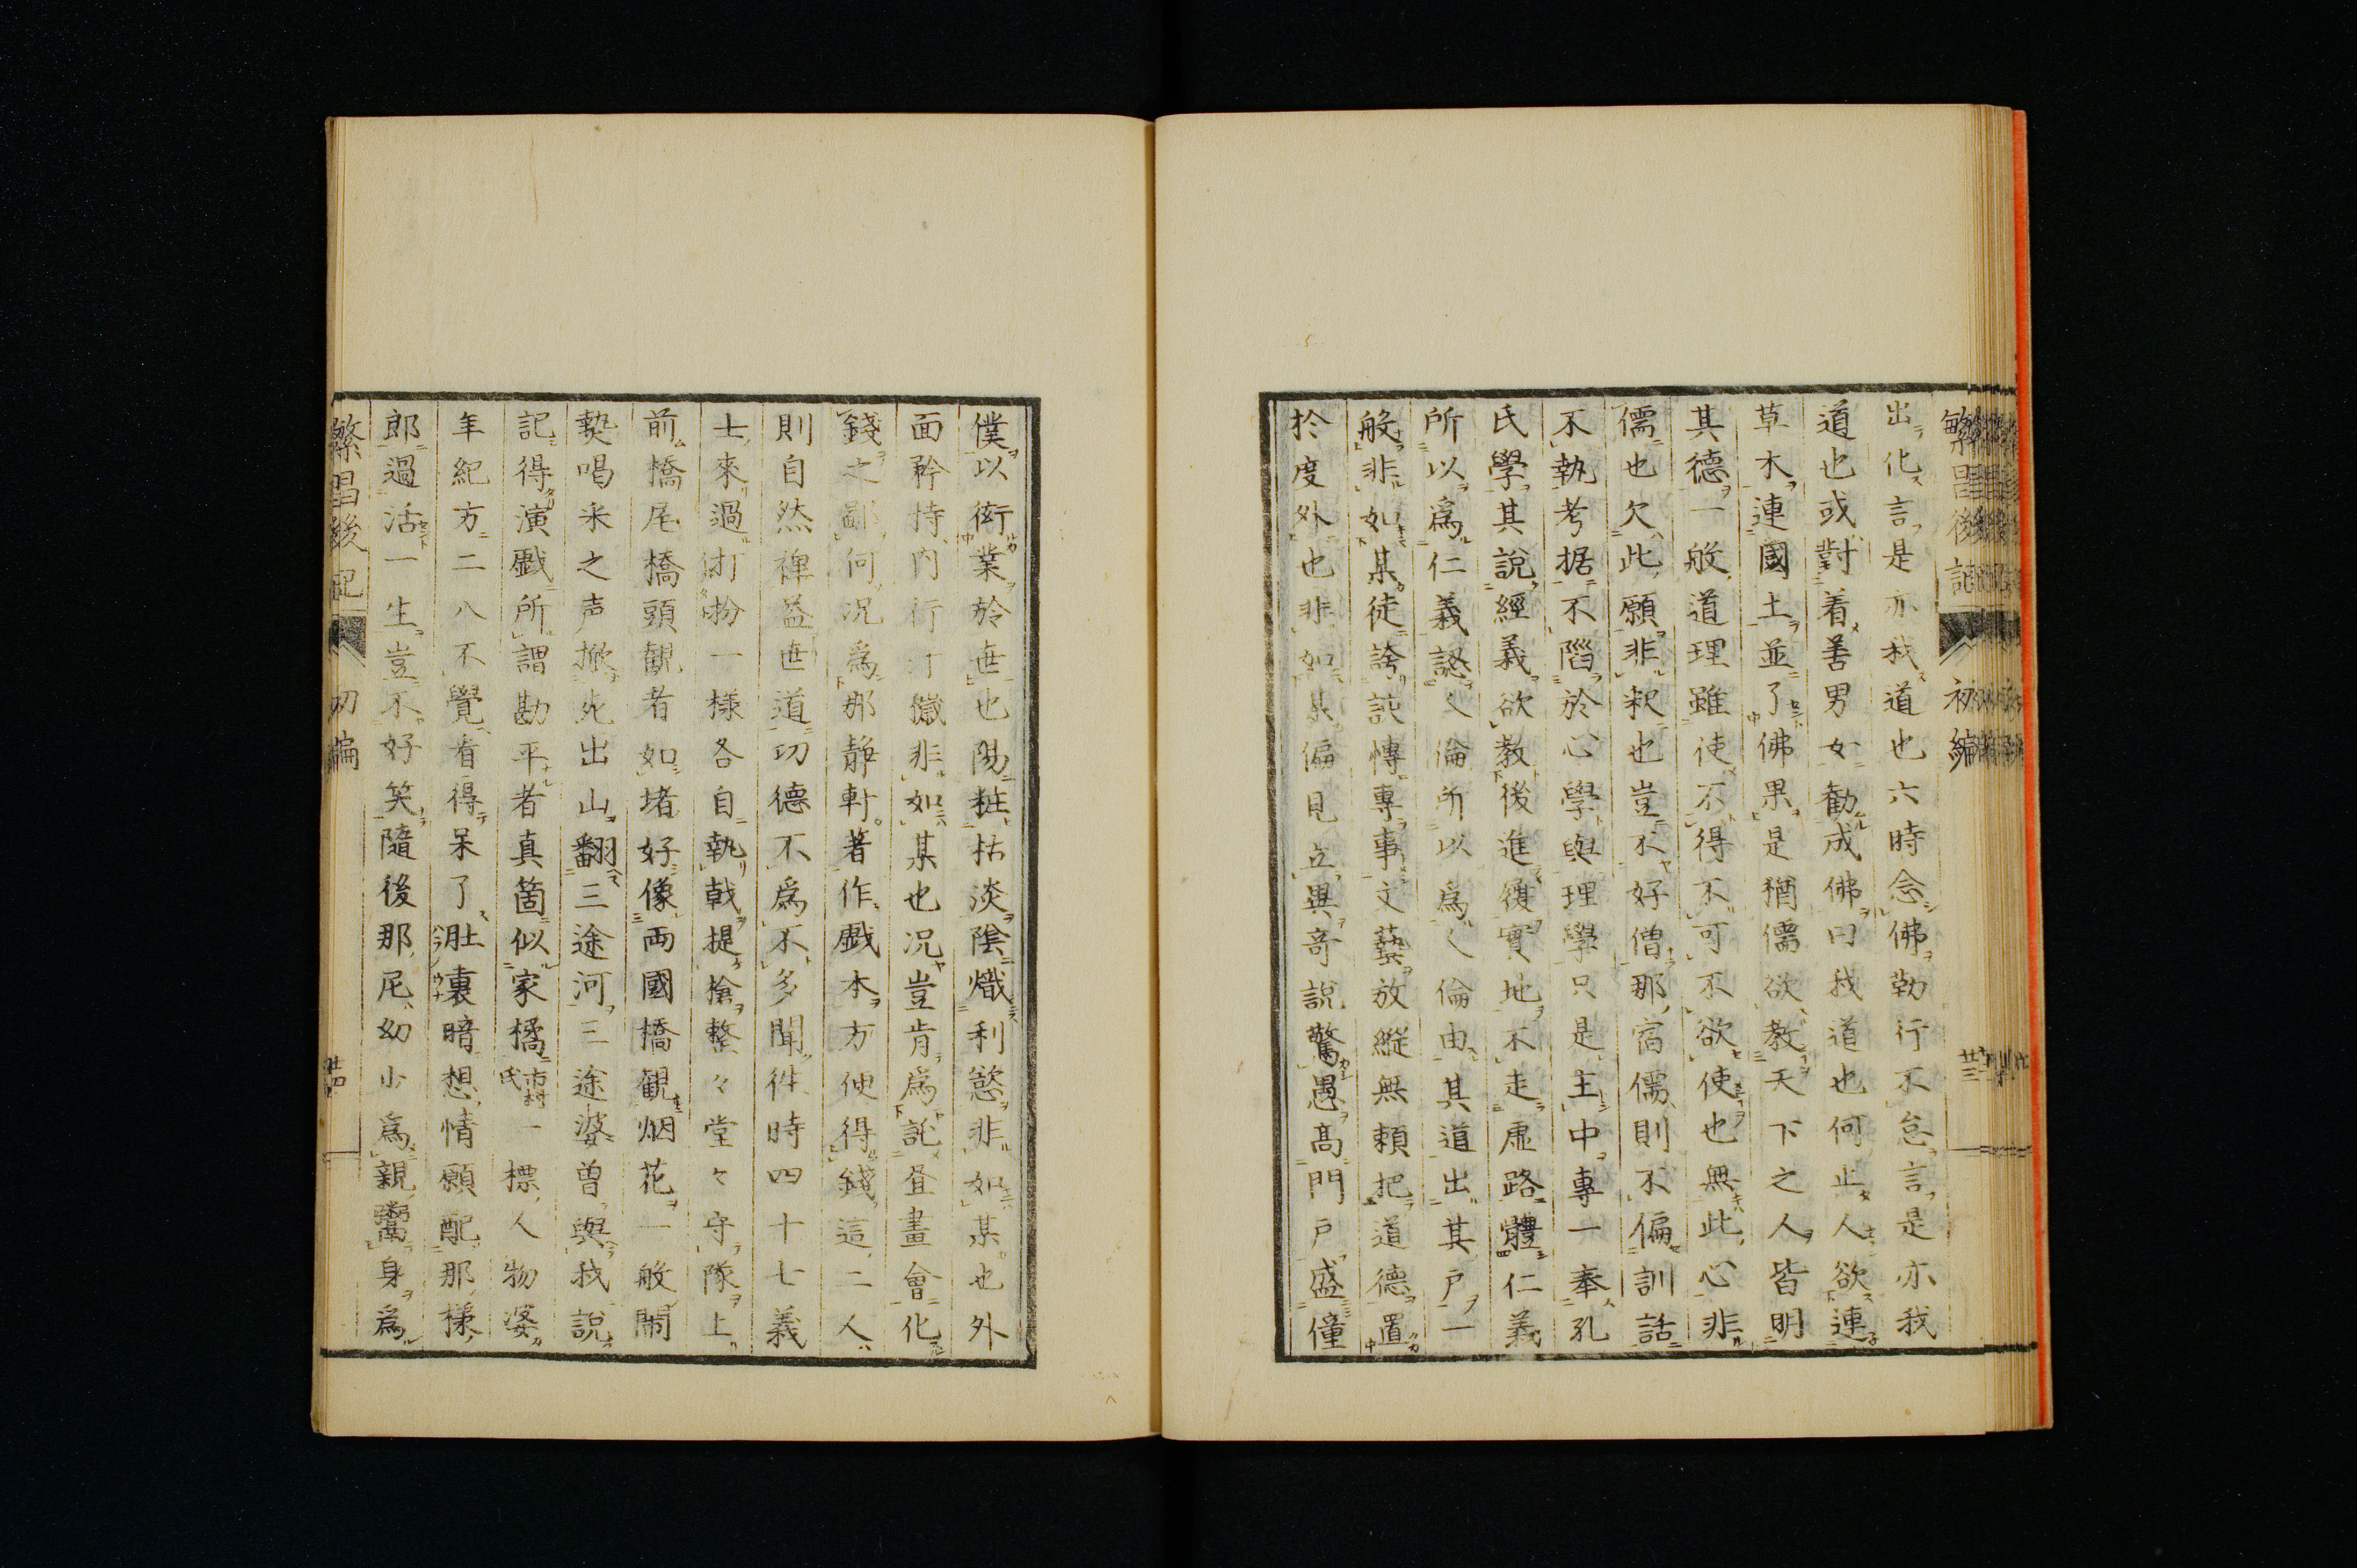 繁昌後記 初編 廿三
出化言是亦我道也六時念佛勤行不怠言是亦我
道也或對着善男女勧成佛曰我道也何止人欲連
草木連國土並了佛果是猶儒欲教天下之人皆明
其德一般道理雖使不得不可不欲使也無此心非
儒也欠此願非釈也豈不好僧那當儒則不偏訓話
不執考据不陷於心學與理學只是主中專一奉孔
氏學其說經義欲教後進復實地不走虚路體仁義
所以爲仁義認人倫所以爲人倫由其道出其戸一
般非如某徒誇試博專事文藝放縱無頼把道德置
於度外也非如某偏見立異竒說驚愚高門戸盛僮
僕以衒業於世也陽粧枯淡陰熾利慾非如某也外
面矜持内行汀儼非如某也况豈肯爲訛昼畫會化
錢之鄙何况爲那靜軒著作戯本方使得錢這二人
則自然裨益世道功德不爲不多聞得時四十七義
士來過打扮一樣各自執戟提搶整々堂々守隊上
前橋尾橋頭観者如堵好像両國橋観烟花一般閙
熱喝采之声撼死出山翻三途河三途婆曽與我說
記得演戯所謂勘平者真箇似家橘市村氏一標人物婆
年紀方二八不覺看得呆了肚裏暗想情願配那様
郎過活一生豈不好笑隨後那尼幼少爲親鬻身爲
繁昌後記 初編 廿四